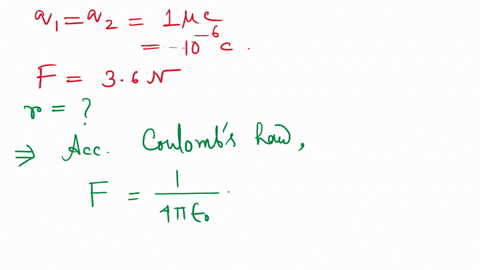 q₁ = q₂ = 1 μc
= -10⁻⁶ c.
F = 3.6 N
r = ?
⇒ Acc. Coulomb's Law,
F = 1/4πε₀